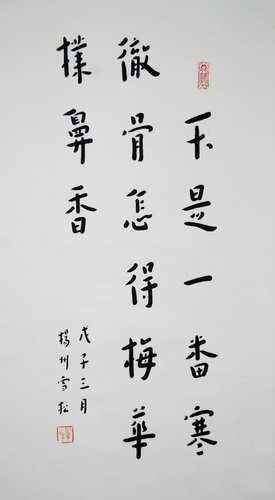 不是一番寒
徹骨怎得梅華
撲鼻香
戊子三月
揚州雪松